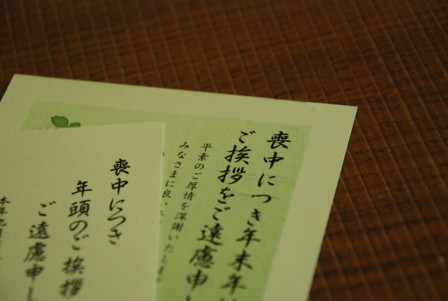 喪中につき年末年
ご挨拶をご遠慮申し
平素のご厚情を深謝いたします
みなさまに良い
喪中につき
年頭のご挨拶
ご遠慮申し
本年